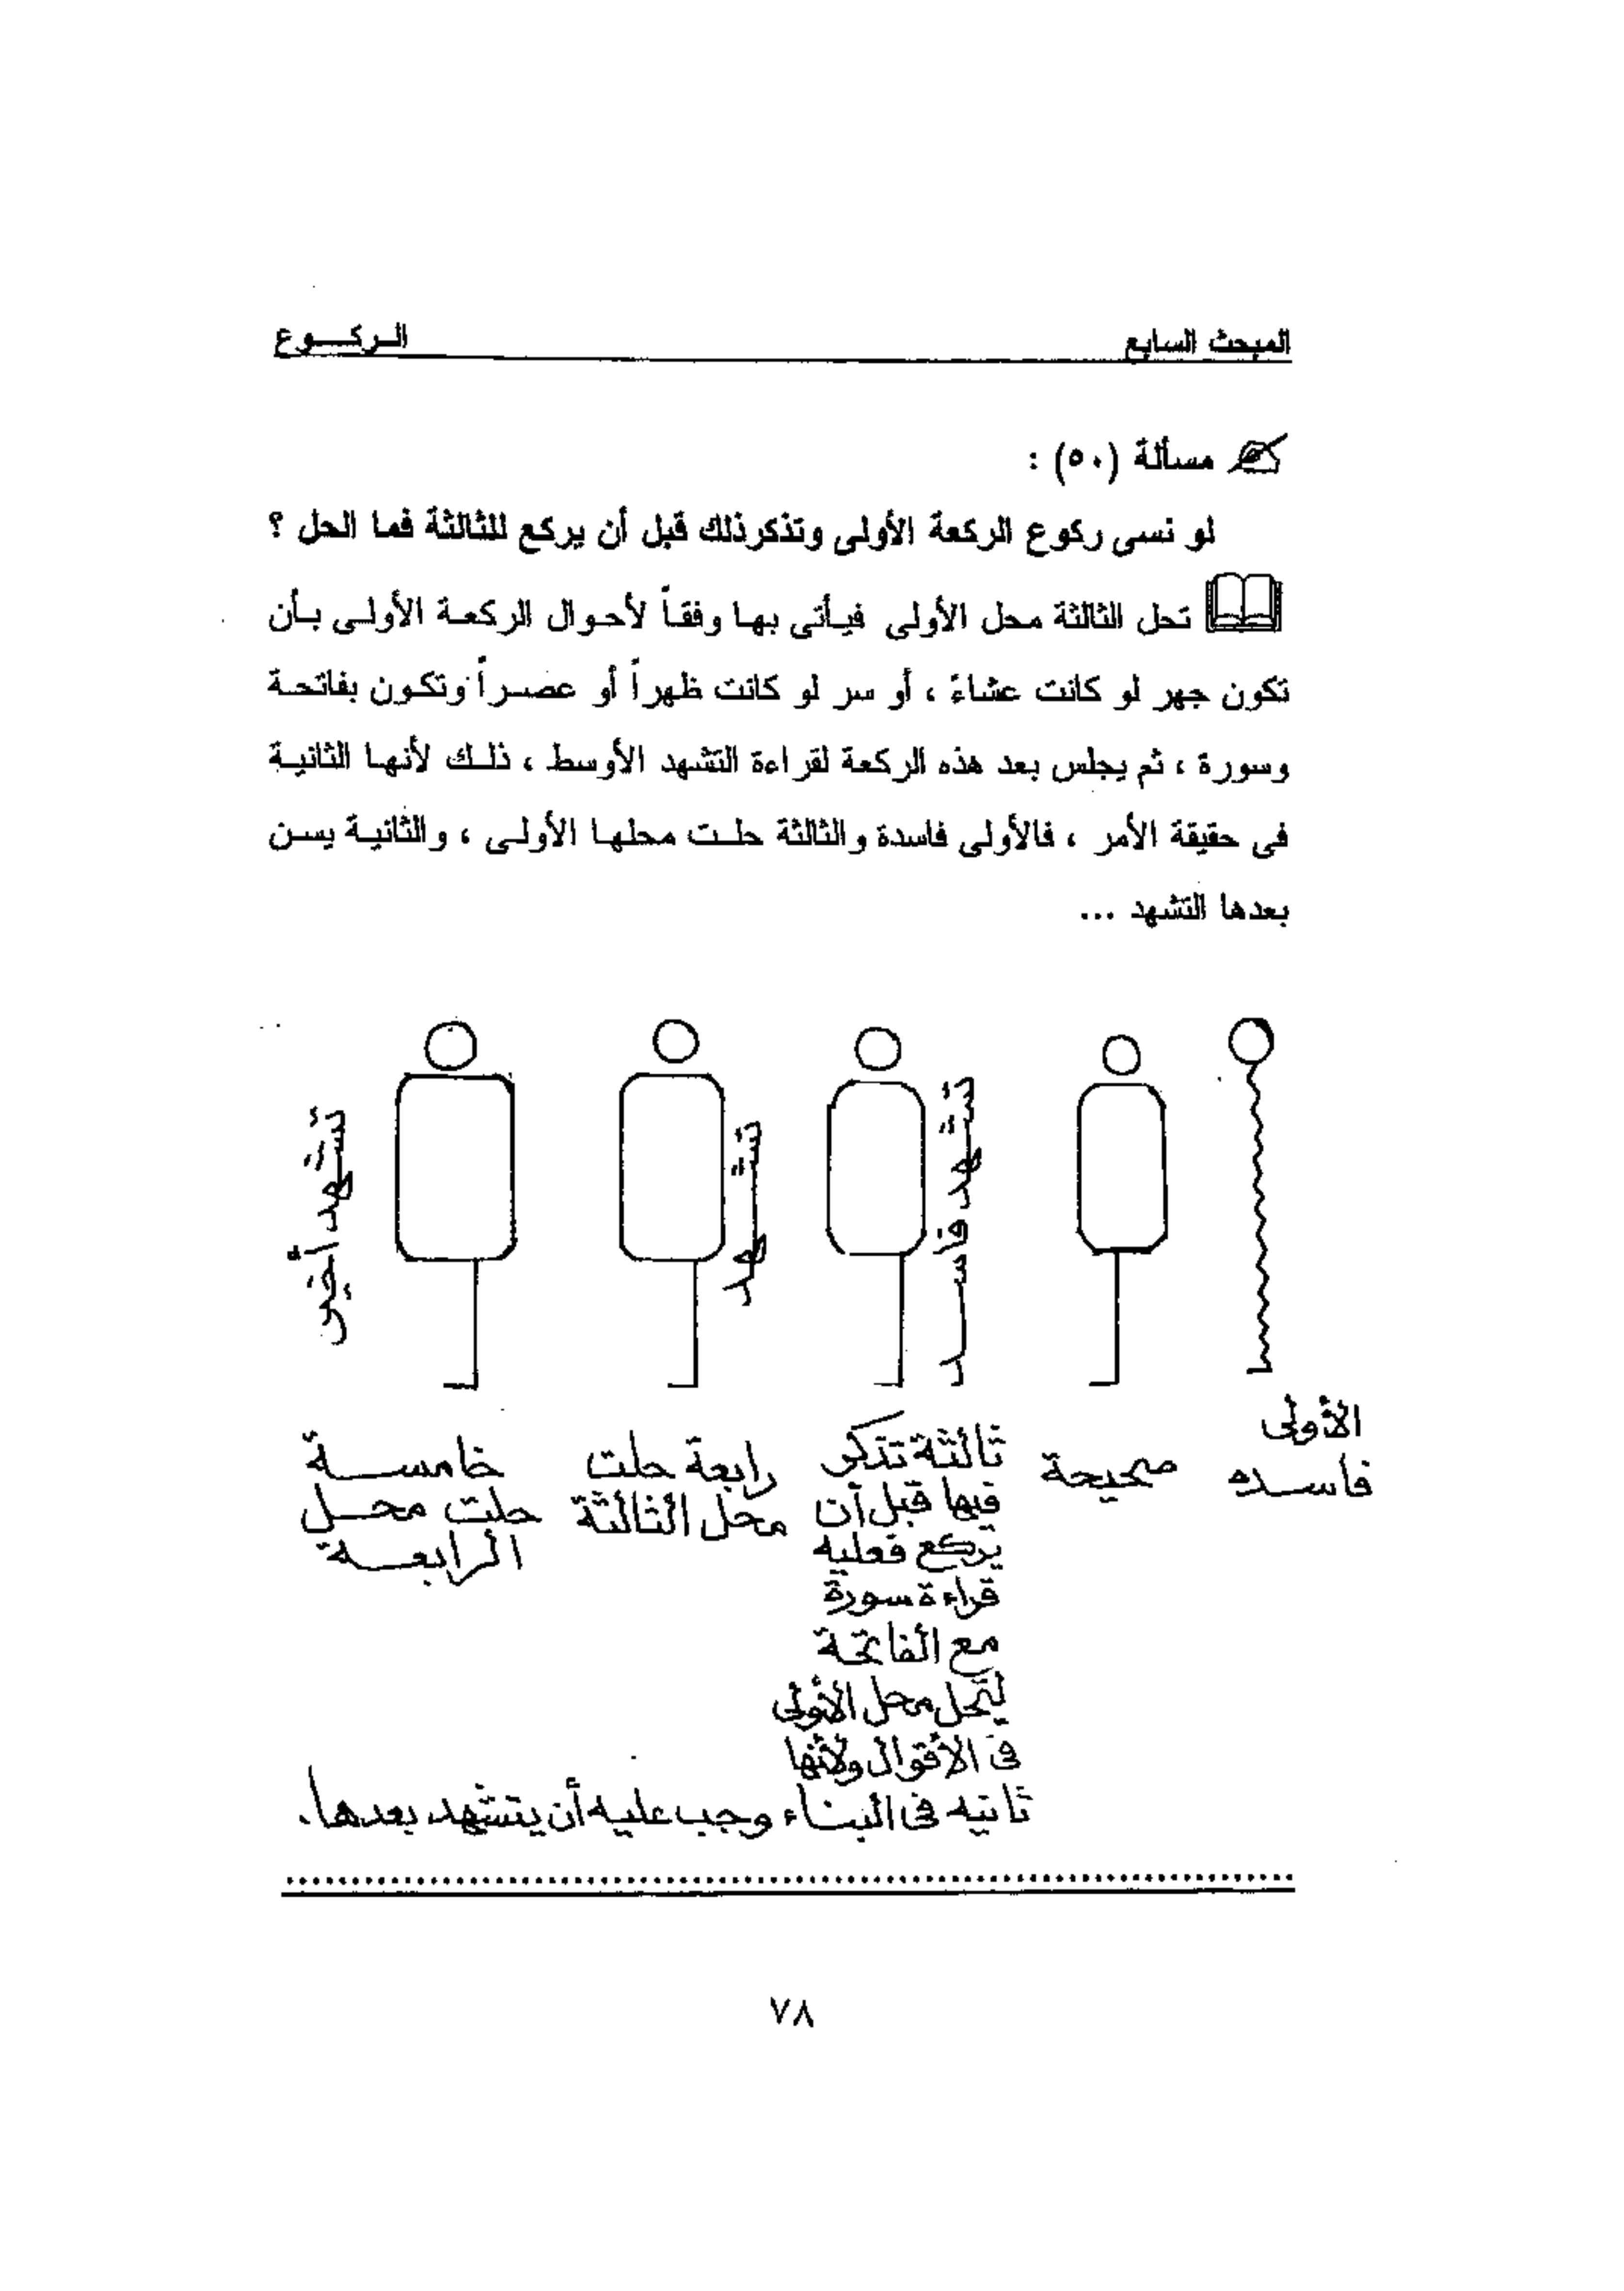 المبحث السابع
الـركـــوع
مسألة (٥٠) :
لو نسى ركوع الركعة الأولى وتذكرذلك قبل أن يركع للثالثة فما الحل ؟
تحل الثالثة محل الأولى فيأتى بها وفقاً لأحوال الركعة الأولى بأن
تكون جهر لو كانت عشاءً ، أو سر لو كانت ظهراً أو عصراً وتكون بفاتحة
وسورة ، ثم يجلس بعد هذه الركعة لقراءة التشهد الأوسط ، ذلك لأنها الثانية
فى حقيقة الأمر ، فالأولى فاسدة والثالثة حلت محلها الأولى ، والثانية يسن
بعدها التشهد ...
تشهد فاسد
تشهد
تشهد أخير
الأولى
فاسده
صحيحة
ثالثة تذكر
فيها قبل أن
يركع فعليه
قراءة سورة
مع الفاتحة
لتحل محل الأولى
فى الأقوال ولأنها
ثانيه فى البناء وجب عليه أن يتشهد بعدها.
رابعة حلت
محل الثالثة
خامسة
حلت محل
الرابعة
٧٨